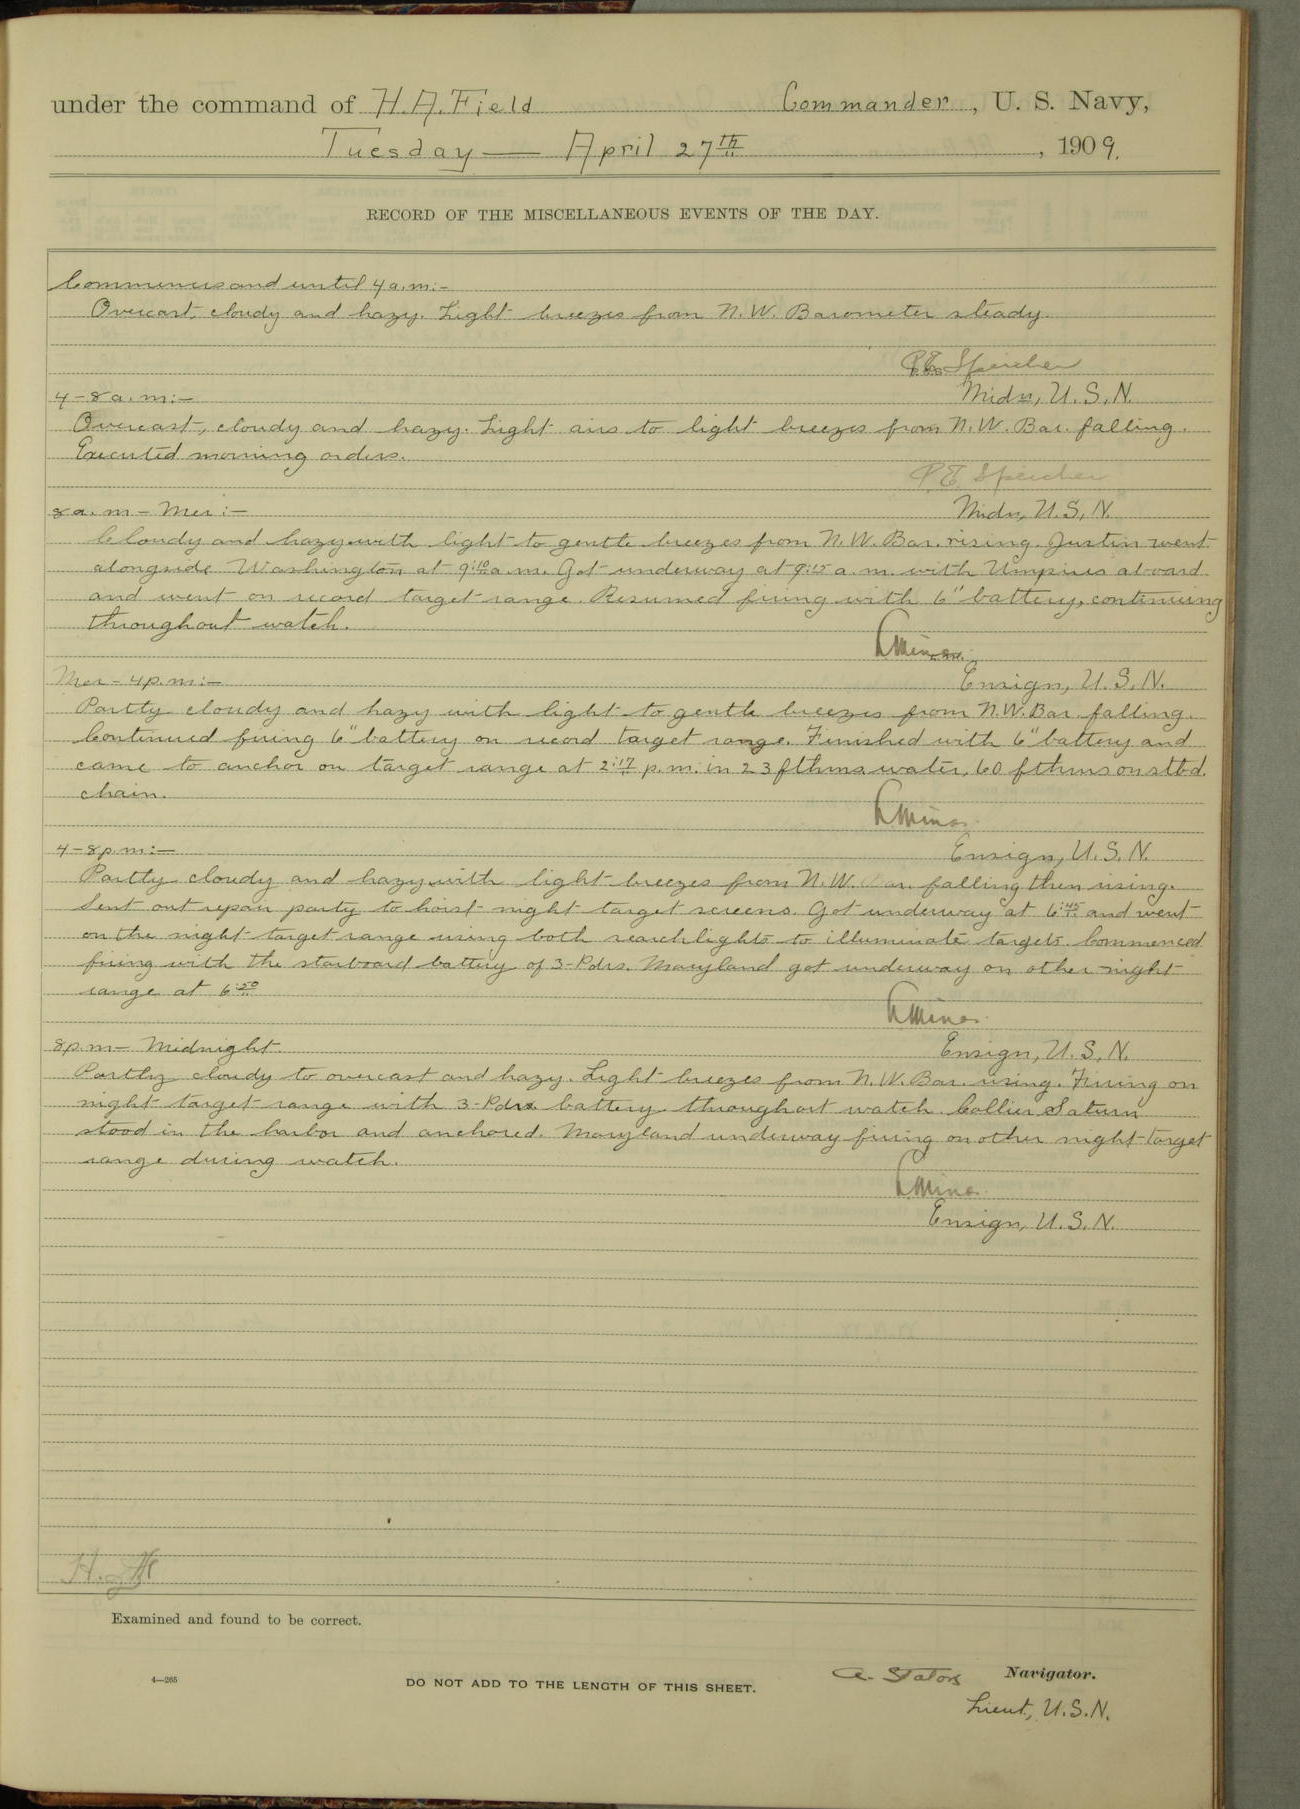 under the command of H.A.Field Commander, U. S. Navy,
Tuesday — April 27th, 1909.
RECORD OF THE MISCELLANEOUS EVENTS OF THE DAY.
Commences and until 4 a.m:-
Overcast, cloudy and hazy. Light breezes from N.W. Barometer steady.
P.E. Speicher
Midn, U.S.N.
4-8 a.m:-
Overcast, cloudy and hazy. Light airs to light breezes from N.W. Bar. falling.
Executed morning orders.
P.E. Speicher
Midn, U.S.N.
8 a.m - Mer:-
Cloudy and hazy with light to gentle breezes from N.W. Bar. rising. Justin went
alongside Washington at 9:10 a.m. Got underway at 9:15 a.m. with Umpires aboard
and went on record target range. Resumed firing with 6" battery, continuing
throughout watch.
Ensign, U.S.N.
Mer - 4 p.m:-
Partly cloudy and hazy with light to gentle breezes from N.W. Bar. falling.
Continued firing 6" battery on record target range. Finished with 6" battery and
came to anchor on target range at 2:17 p.m. in 23 fthms. water, 60 fthms on stbd.
chain.
Ensign, U.S.N.
4-8 p.m:-
Partly cloudy and hazy with light breezes from N.W. Bar. falling then rising.
Sent out repair party to hoist night target screens. Got underway at 6:45 and went
on the night target range using both searchlights to illuminate targets. Commenced
firing with the starboard battery of 3-Pdrs. Maryland got underway on other night
range at 6:20
Ensign, U.S.N.
8 p.m - Midnight.
Partly cloudy to overcast and hazy. Light breezes from N.W. Bar. rising. Firing on
night target range with 3-Pdrs. battery throughout watch. Collier Saturn
stood in the harbor and anchored. Maryland underway firing on other night target
range during watch.
Ensign, U.S.N.
Examined and found to be correct.
4—265
DO NOT ADD TO THE LENGTH OF THIS SHEET.
Navigator.
Lieut, U.S.N.